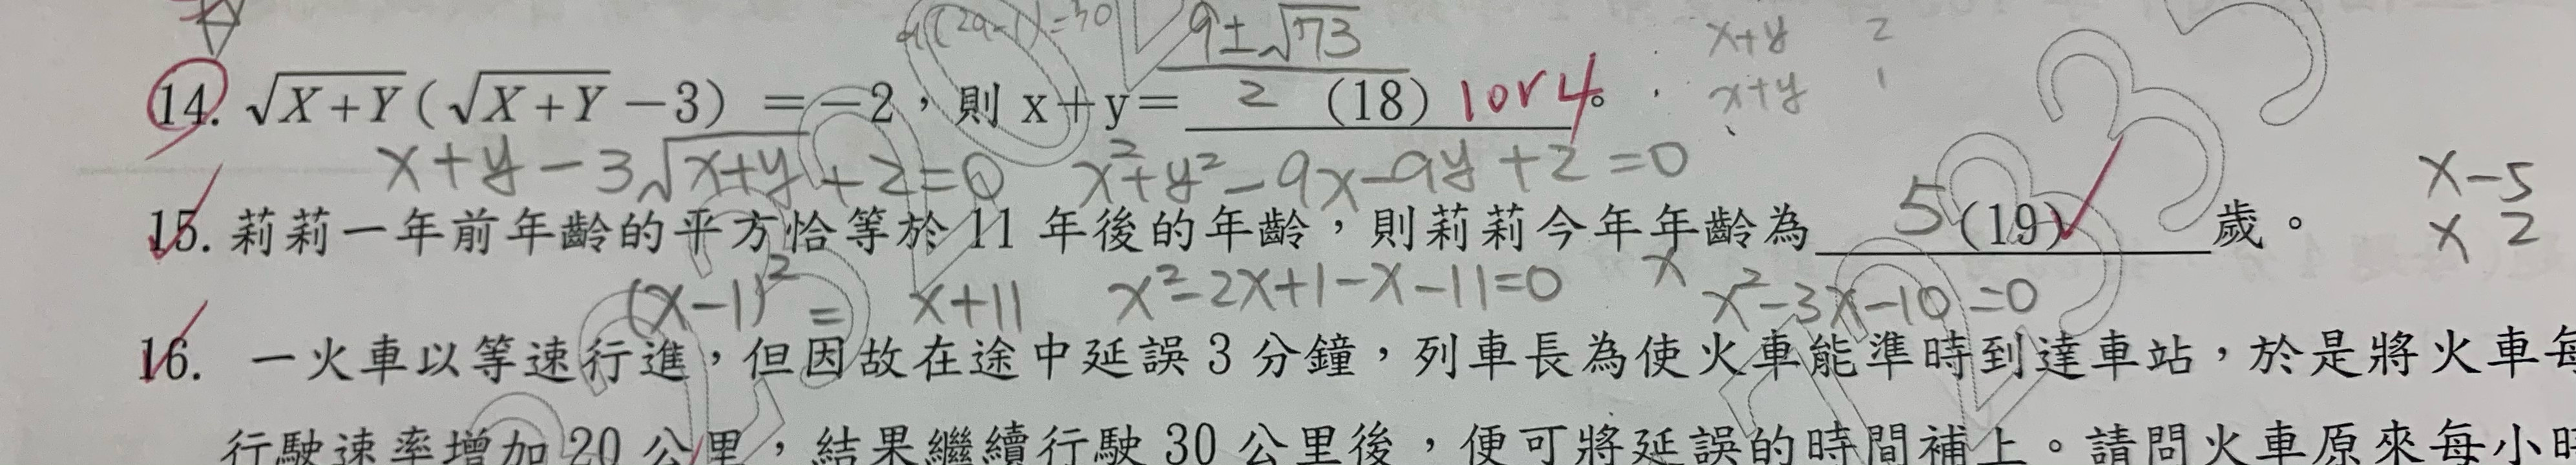 (2a-1)=30
9±√73
x+y 2
14. √X+Y(√X+Y-3)=-2，則 x+y= 2 (18) 1or4。
x+y 1
x+y-3√x+y+2=0 x²+y²-9x-9y+2=0
x-5
15. 莉莉一年前年齡的平方恰等於 11 年後的年齡，則莉莉今年年齡為 5 (19) 歲。
x 2
(x-1)²= x+11 x²-2x+1-x-11=0 x x²-3x-10=0
16. 一火車以等速行進，但因故在途中延誤 3 分鐘，列車長為使火車能準時到達車站，於是將火車每
行駛速率增加 20 公里，結果繼續行駛 30 公里後，便可將延誤的時間補上。請問火車原來每小時